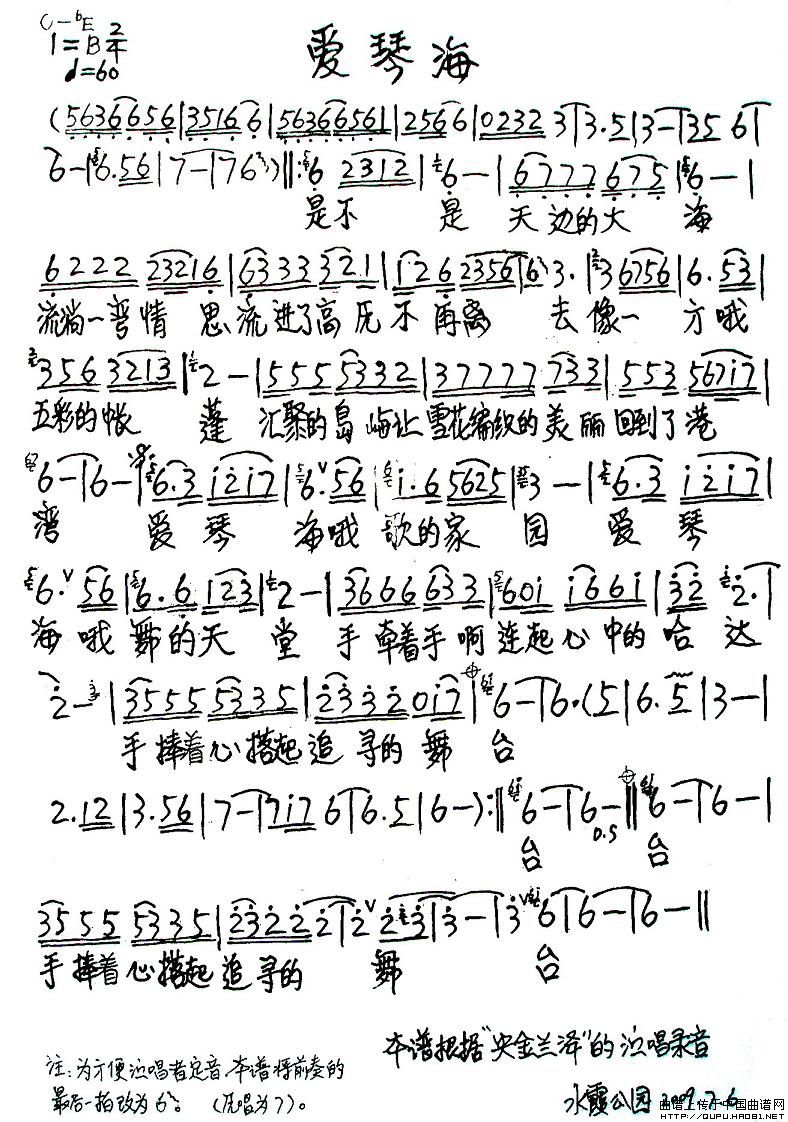 C-bE
1=B 2/4
♩=60
爱琴海
(5636656|35166|563666561|25666|0232 3|3.5|3-|35 6|
6-|6.56|7-|76)‖:6 2312|6-|6777 675|6-|
是不 是 天边的大 海
6222 23216|63333321|i26 23566|3.|36756|6.53|
流淌一弯情 思流进了高原不再离 去像一 方哦
356 3213|2-|5555332|37777 733|553 567i7|
五彩的帐 蓬 汇聚的岛屿让雪花编织的美丽回到了港
6-|6-|6.3 i2i7|6.56|i.6 5625|3-|6.3 i2i7|
湾 爱琴 海哦歌的家 园 爱琴
6.56|6.6 123|2-|3666 633|60i i66i|32 2.|
海哦舞的天 堂 手牵着手啊连起心中的哈达
2-|3555 5335|23320i7|6-|6.(5|6.5|3-|
手捧着心搭起追寻的舞台
2.12|3.56|7-|7i7 6|6.5|6-):‖6-|6-‖6-|6-|
D.S
台 台
3555 5335|2322 2|2 23|3-|3 6|6-|6-‖
手捧着心搭起追寻的 舞 台
本谱根据"央金兰泽"的演唱录音
注:为方便演唱者定音,本谱将前奏的
最后一拍改为6。(原唱为7)。
水霞公园 2009.7.6
曲谱上传于中国曲谱网
HTTP://QUPU.HAO81.NET